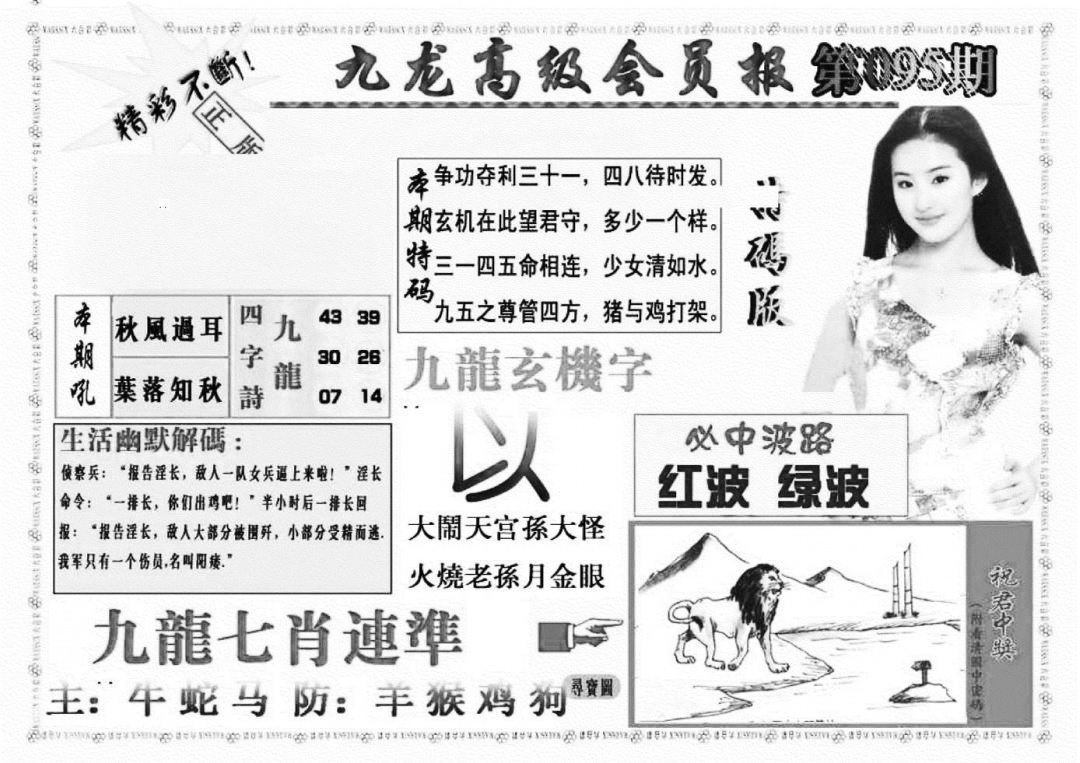 精彩不斷！
正版
九龙高级会员报 第095期
本期特码
争功夺利三十一，四八待时发。
玄机在此望君守，多少一个样。
三一四五命相连，少女清如水。
九五之尊管四方，猪与鸡打架。
特碼版
本期吼
秋風過耳
葉落知秋
四字詩
九龍
43 39
30 26
07 14
九龍玄機字
以
大鬧天宫孫大怪
火燒老孫月金眼
生活幽默解碼：
侦察兵：“报告淫长，敌人一队女兵逼上来啦！”淫长
命令：“一排长，你们出鸡吧！”半小时后一排长回
报：“报告淫长，敌人大部分被围歼，小部分受精而逃.
我军只有一个伤员,名叫阳痿.”
必中波路
红波 绿波
九龍七肖連準
主：牛蛇马 防：羊猴鸡狗
尋寶圖
祝君中獎
（附看清圖中密碼）